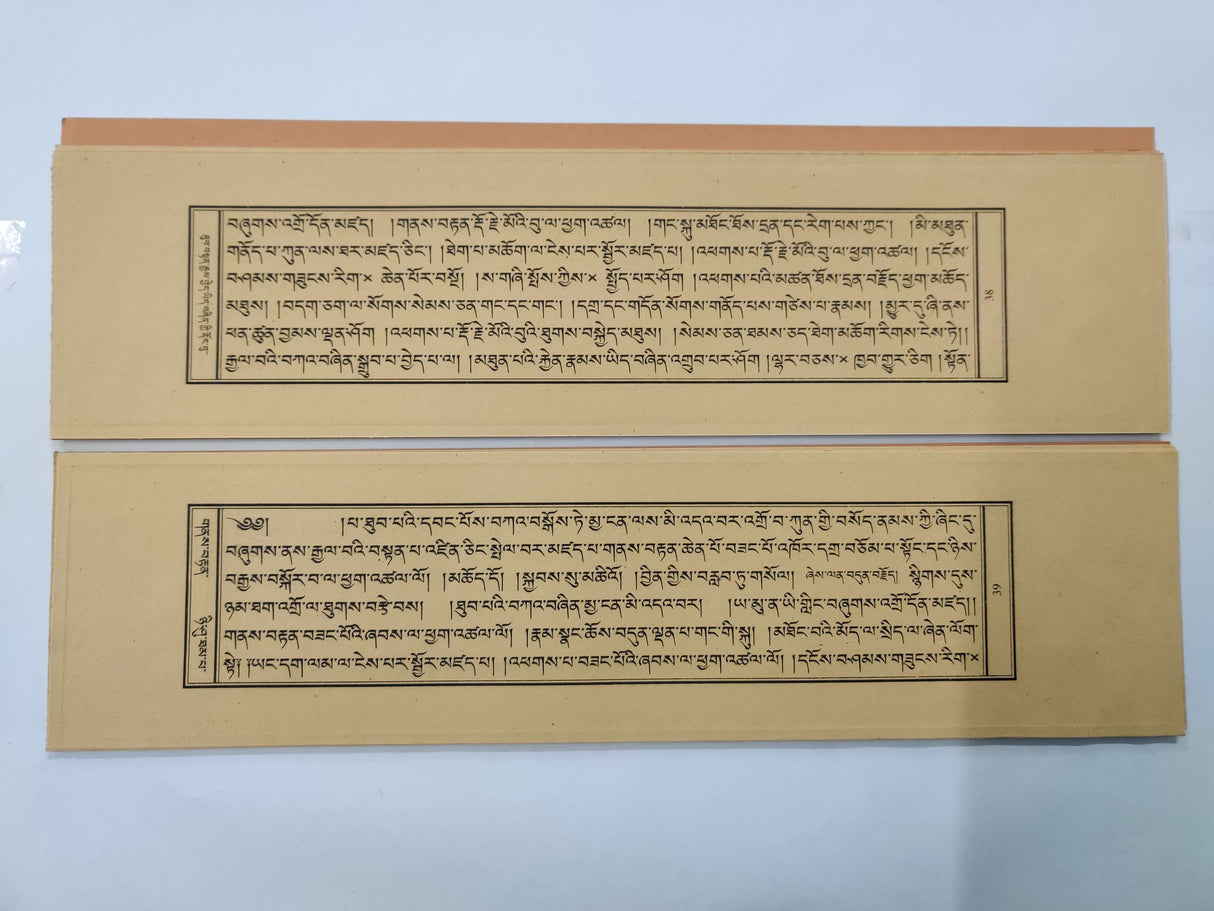 བཞུགས་འགྲོ་དོན་མཛད། །གནས་བརྟན་རྡོ་རྗེ་མོའི་བུ་ལ་ཕྱག་འཚལ། །གང་སྐུ་མཐོང་ཐོས་དྲན་དང་རེག་པས་ཀྱང་། །མི་མཐུན་
གནོད་པ་ཀུན་ལས་ཐར་མཛད་ཅིང་། །ཐེག་པ་མཆོག་ལ་ངེས་པར་སྦྱོར་མཛད་པ། །འཕགས་པ་རྡོ་རྗེ་མོའི་བུ་ལ་ཕྱག་འཚལ། །དངོས་
བཤམས་གཟུངས་རིག་× ཆེན་པོར་བསྔོ། །ས་གཞི་སྤོས་ཀྱིས་× སྤྱོད་པར་ཤོག །འཕགས་པའི་མཚན་ཐོས་དྲན་བརྗོད་ཕྱག་མཆོད་
མཐུས། །བདག་ཅག་ལ་སོགས་སེམས་ཅན་གང་དང་གང་། །དགྲ་དང་གདོན་སོགས་གནོད་པས་གཙེས་པ་རྣམས། །མྱུར་དུ་ཞི་ནས་
ཕན་ཚུན་བྱམས་ལྡན་ཤོག །འཕགས་པ་རྡོ་རྗེ་མོའི་བུའི་ཐུགས་བསྐྱེད་མཐུས། །སེམས་ཅན་ཐམས་ཅད་ཐེག་མཆོག་རིགས་ངེས་ཏེ།།
རྒྱལ་བའི་བཀའ་བཞིན་སྒྲུབ་པ་བྱེད་པ་ལ། །མཐུན་པའི་རྐྱེན་རྣམས་ཡིད་བཞིན་འགྲུབ་པར་ཤོག །ལྷར་བཅས་× ཁྱབ་གྱུར་ཅིག །སྟོན་
38
གནས་བརྟན་
༄༅། །པ་ཐུབ་པའི་དབང་པོས་བཀའ་བསྒོས་ཏེ་མྱ་ངན་ལས་མི་འདའ་བར་འགྲོ་བ་ཀུན་གྱི་བསོད་ནམས་ཀྱི་ཞིང་དུ་
བཞུགས་ནས་རྒྱལ་བའི་བསྟན་པ་འཛིན་ཅིང་སྤེལ་བར་མཛད་པ་གནས་བརྟན་ཆེན་པོ་བཟང་པོ་འཁོར་དགྲ་བཅོམ་པ་སྟོང་དང་ཉིས་
བརྒྱས་བསྐོར་བ་ལ་ཕྱག་འཚལ་ལོ། །མཆོད་དོ། །སྐྱབས་སུ་མཆིའོ། །བྱིན་གྱིས་བརླབ་ཏུ་གསོལ། ཞེས་ལན་བདུན་བརྗོད། སྙིགས་དུས་
ཉམ་ཐག་འགྲོ་ལ་ཐུགས་བརྩེ་བས། །ཐུབ་པའི་བཀའ་བཞིན་མྱ་ངན་མི་འདའ་བར། །ཡ་མུ་ན་ཡི་གླིང་བཞུགས་འགྲོ་དོན་མཛད།།
གནས་བརྟན་བཟང་པོའི་ཞབས་ལ་ཕྱག་འཚལ་ལོ། །རྣམ་སྣང་ཆོས་བདུན་ལྡན་པ་གང་གི་སྐུ། །མཐོང་བའི་མོད་ལ་སྲིད་ལ་ཞེན་ལོག་
སྟེ། །ཡང་དག་ལམ་ལ་ངེས་པར་སྦྱོར་མཛད་པ། །འཕགས་པ་བཟང་པོའི་ཞབས་ལ་ཕྱག་འཚལ་ལོ། །དངོས་བཤམས་གཟུངས་རིག་×
39